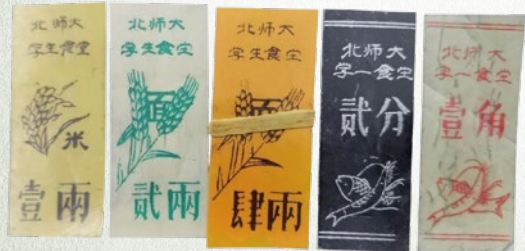 北师大
学生食堂
米
壹两
北师大
学生食堂
面
贰两
北师大
学生食堂
面
肆两
北师大
学一食堂
贰分
北师大
学一食堂
壹角